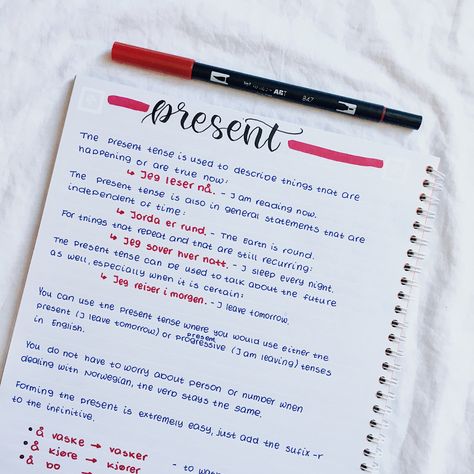 ART 847
present
The present tense is used to describe things that are
happening or are true now:
↳ Jeg leser nå. - I am reading now.
The present tense is also in general statements that are
independent of time:
↳ Jorda er rund. - The Earth is round.
For things that repeat and that are still recurring:
↳ Jeg sover hver natt. - I sleep every night.
The present tense can be used to talk about the future
as well, especially when it is certain:
↳ Jeg reiser i morgen. - I leave tomorrow.
You can use the present tense where you would use either the
present (I leave tomorrow) or present progressive (I am leaving) tenses
in English.
You do not have to worry about person or number when
dealing with Norwegian, the verb stays the same.
Forming the present is extremely easy, just add the sufix -r
to the infinitive.
• å vaske → vasker
• å kjøre → kjører - to
• å bo →